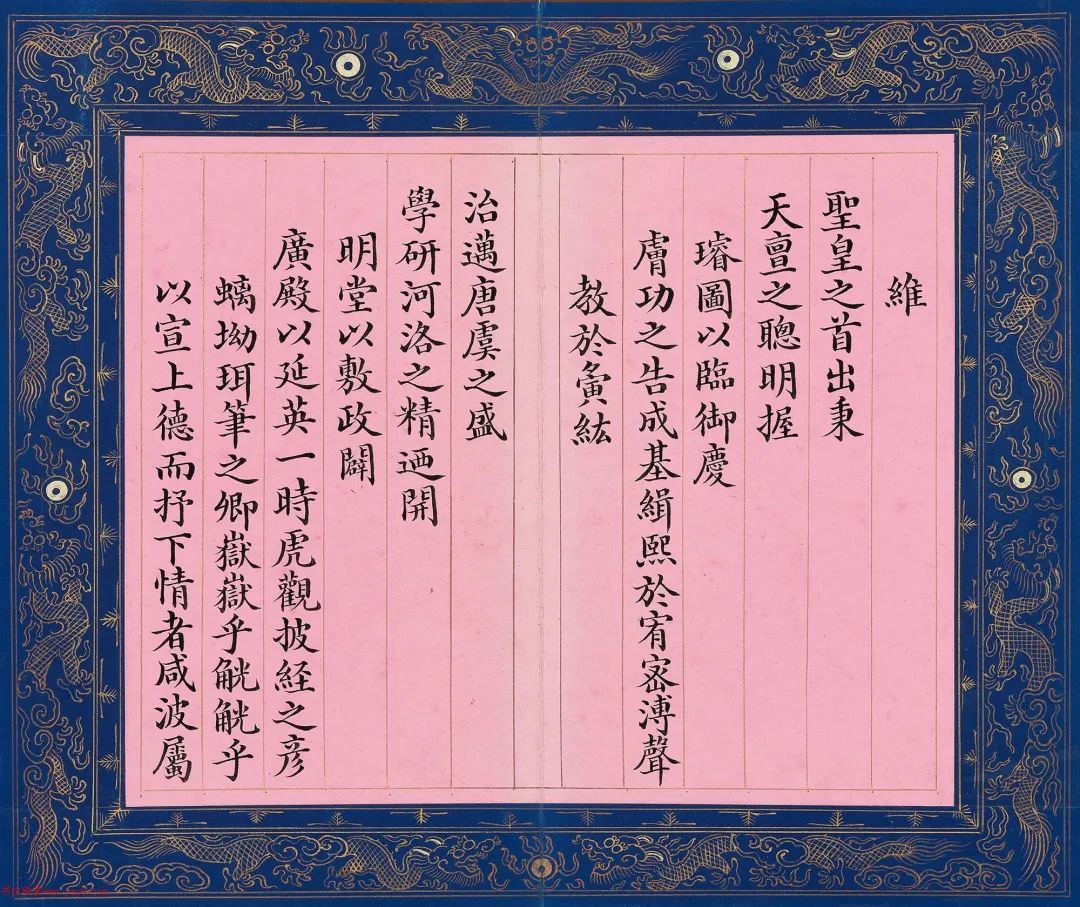 維
聖皇之首出秉
天亶之聰明握
璿圖以臨御慶
膚功之告成基緝熙於宥密溥聲
教於夤紘
治邁唐虞之盛
學研河洛之精迺開
明堂以敷政闢
廣殿以延英一時虎觀披経之彦
螭坳珥筆之卿嶽嶽乎觥觥乎
以宣上德而抒下情者咸波屬